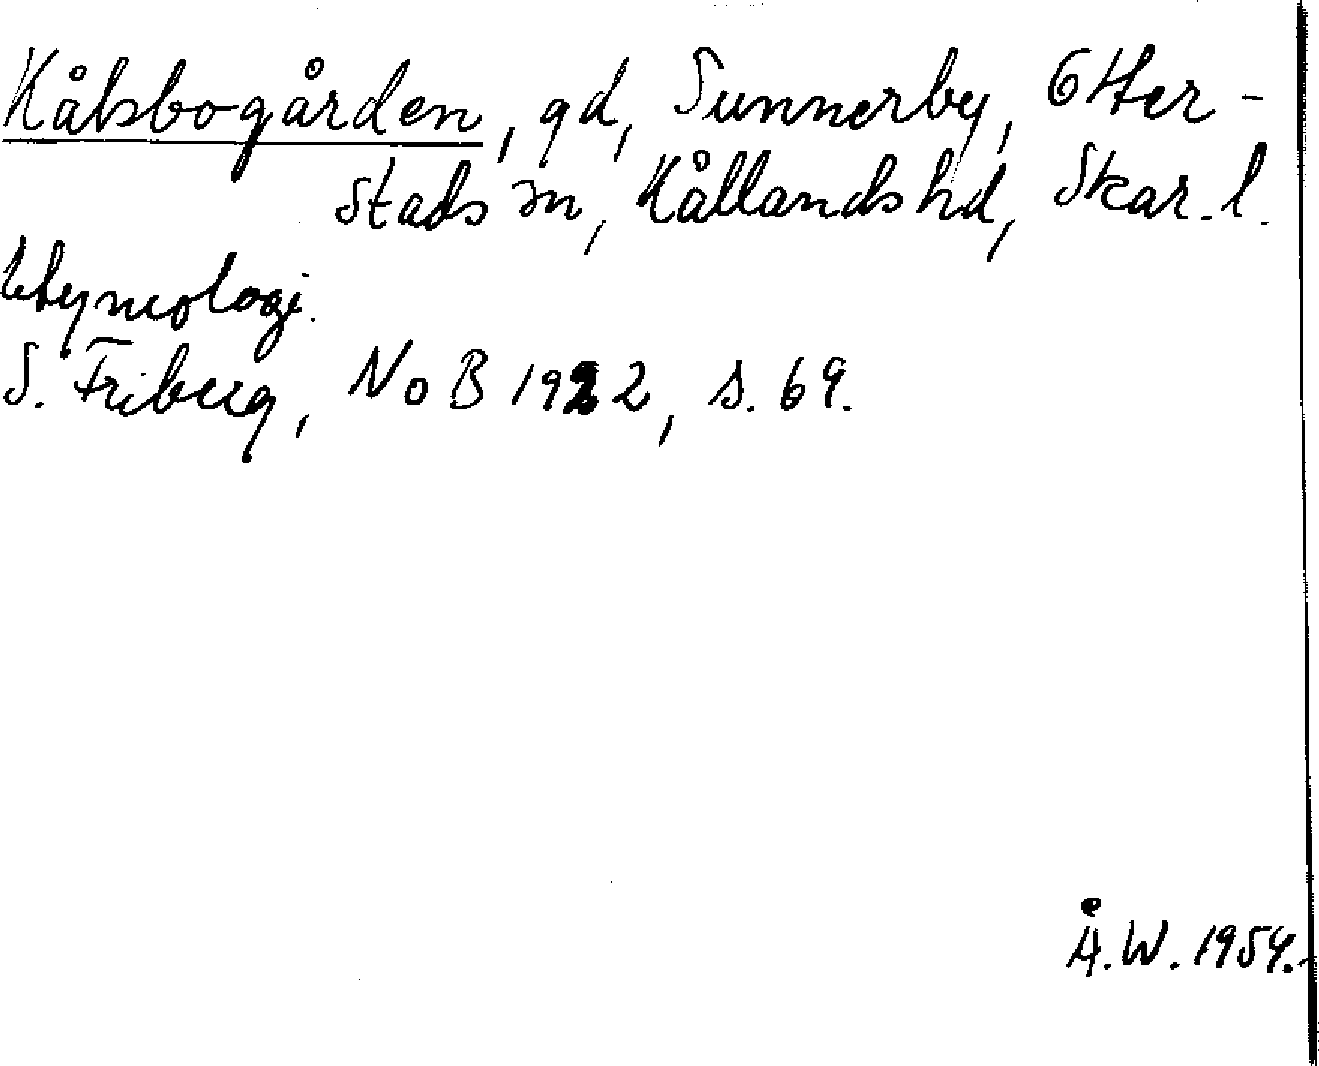 Kålsbogården, gd, Sunnerby, Otter-
stads sn, Kållands hd, Skar. l.
Etymologi.
S. Friberg, NoB 1922, s. 69.
Å.W. 1954.